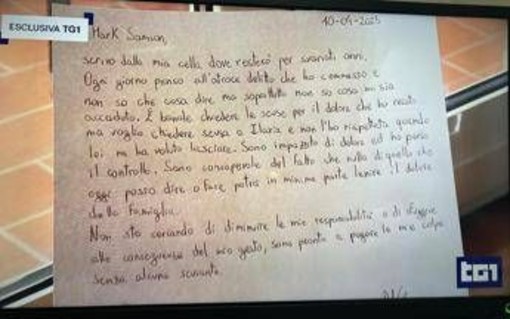 ESCLUSIVA TG1
10-04-2025
Mark Samson,
scrivo dalla mia cella dove resterò per svariati anni.
Ogni giorno penso all'atroce delitto che ho commesso e
non so che cosa dire ma soprattutto non so cosa mi sia
accaduto. È banale chiedere le scuse per il dolore che ho recato
ma voglio chiedere scusa a Ilaria e non l'ho rispettata quando
lei mi ha voluto lasciare. Sono impazzito di dolore ed ho perso
il controllo. Sono consapevole del fatto che nulla di quello che
oggi posso dire o fare potrà in minima parte lenire il dolore
della famiglia.
Non sto cercando di diminuire le mie responsabilità o di sfuggire
alle conseguenze del mio gesto, sono pronto a pagare la mia colpa
senza alcuna scusante.
TG1